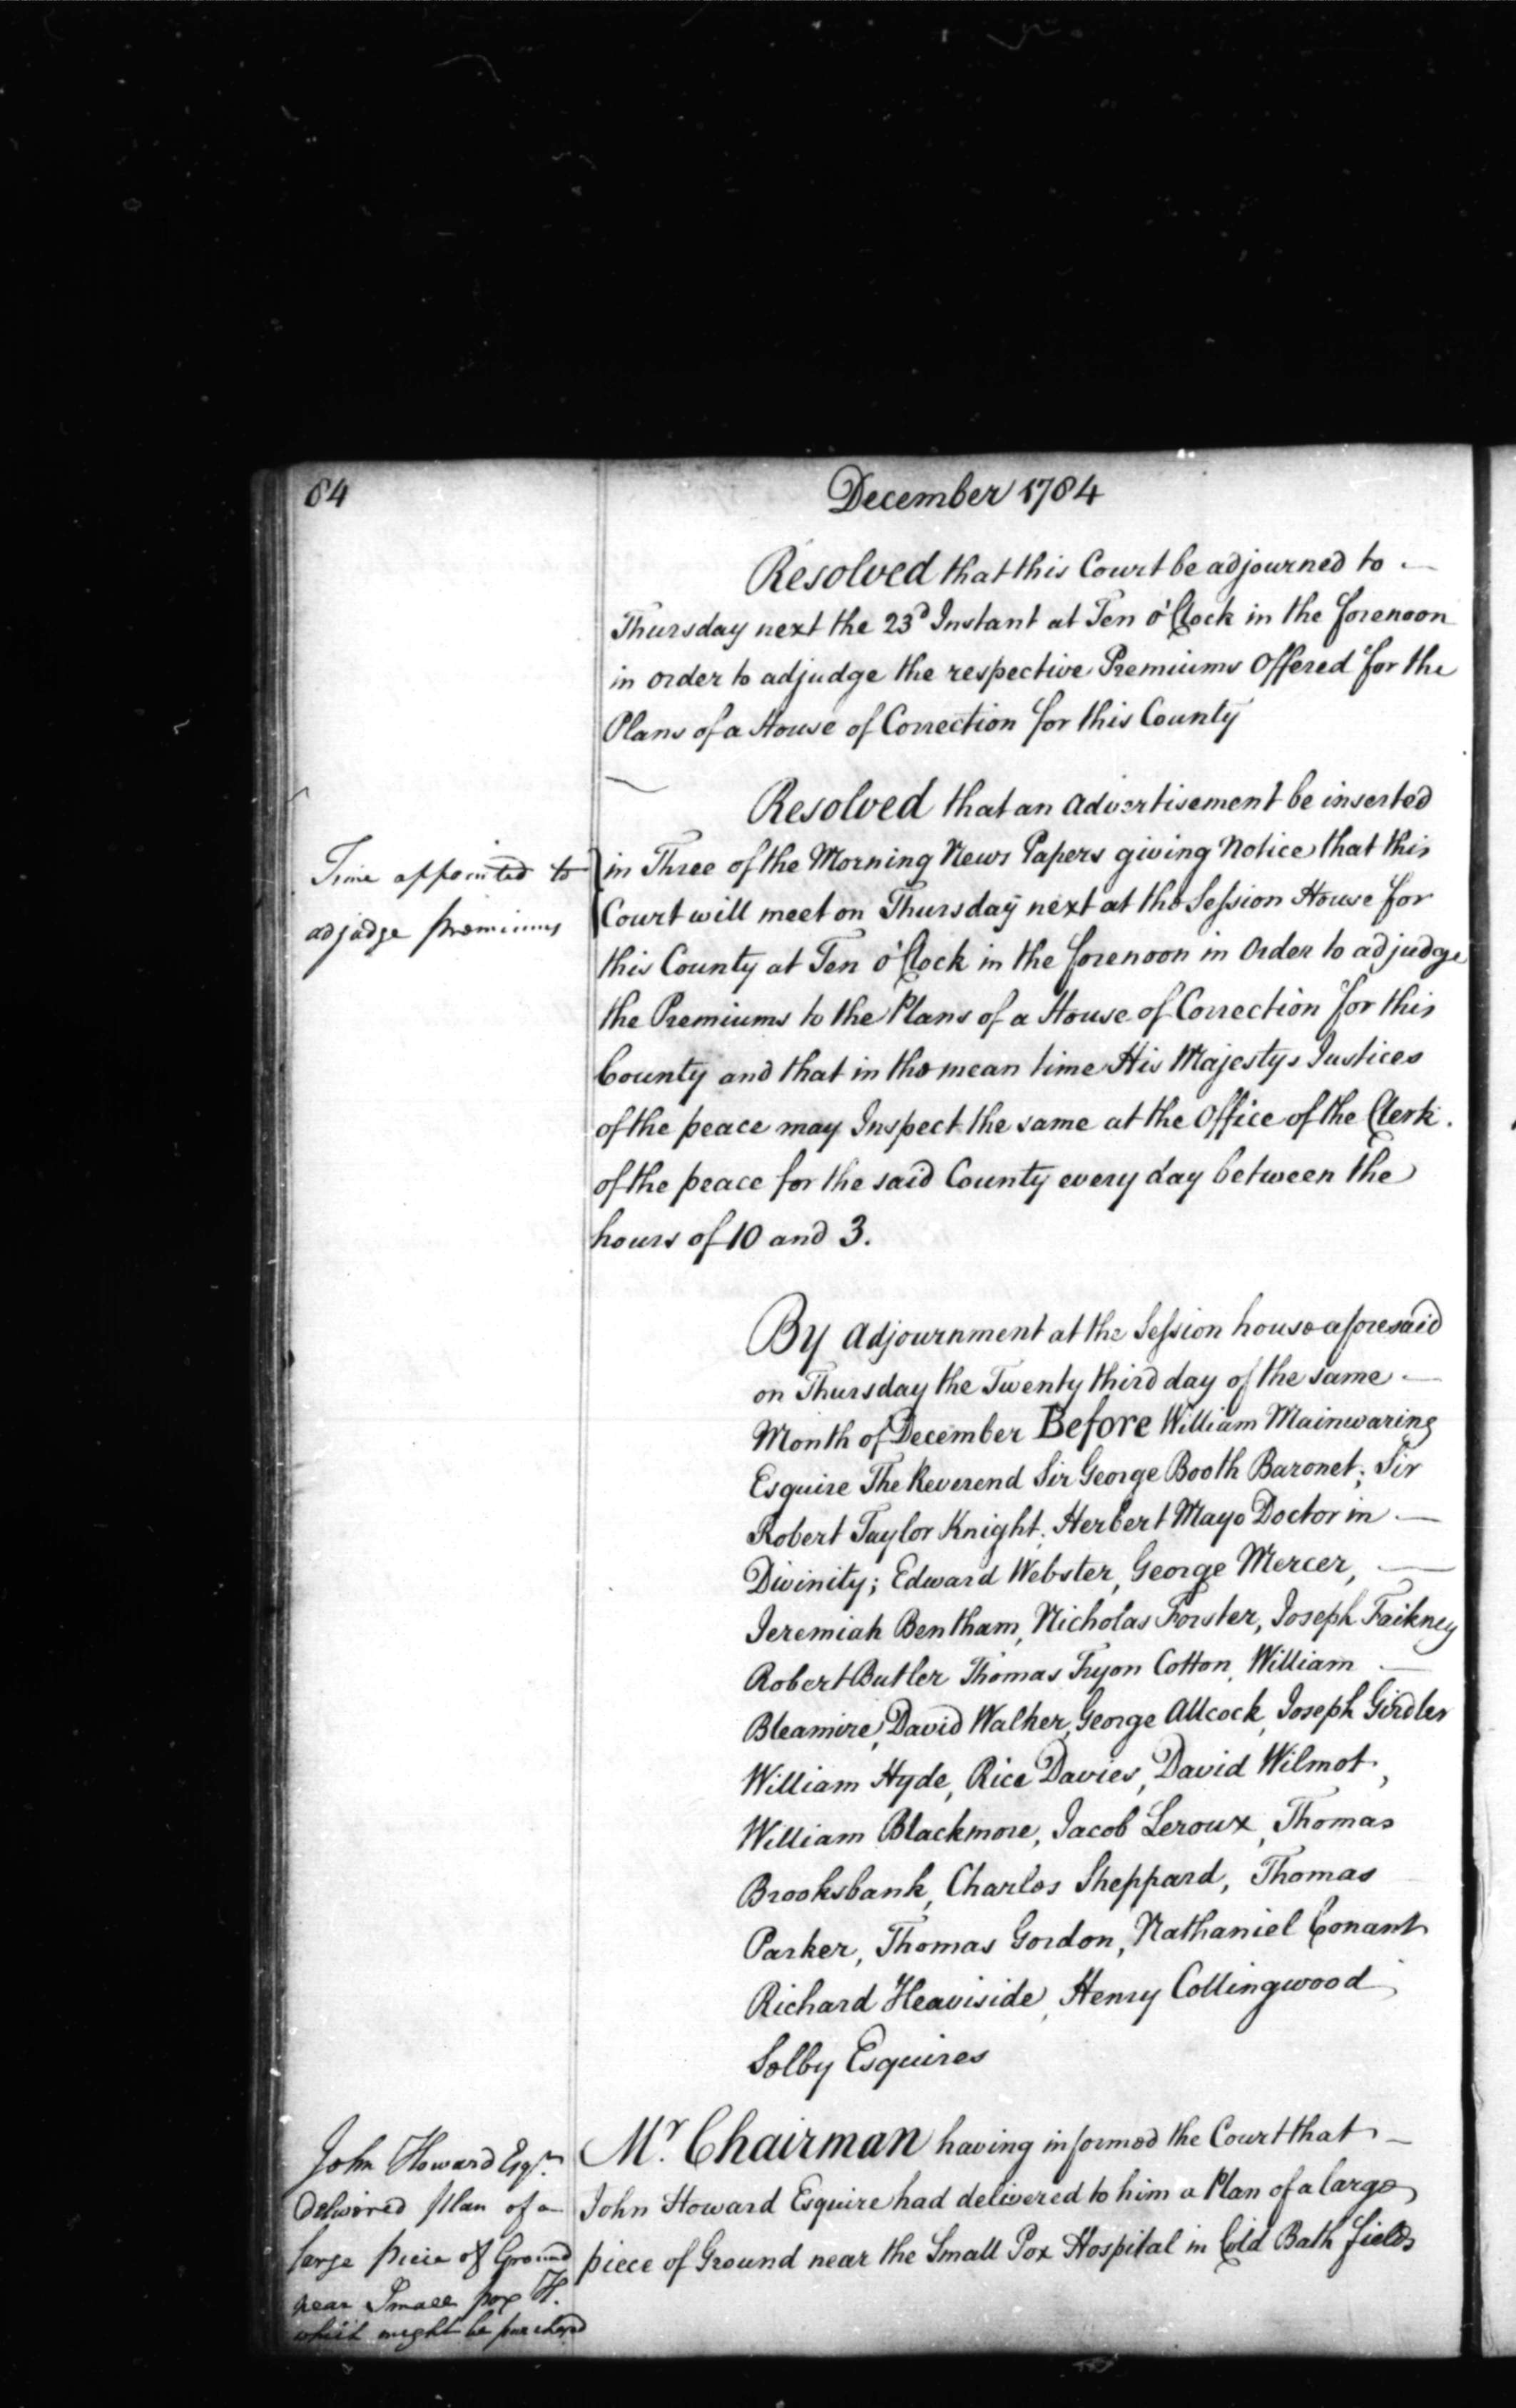 84
December 1784
Resolved that this Court be adjourned to
Thursday next the 23d Instant at Ten o'Clock in the forenoon
in order to adjudge the respective Premiums Offered for the
Plans of a House of Correction for this County
Resolved that an Advertisement be inserted
Time appointed to
adjudge premiums
in Three of the Morning News Papers giving Notice that this
Court will meet on Thursday next at the Session House for
this County at Ten o'Clock in the forenoon in Order to adjudge
the Premiums to the Plans of a House of Correction for this
County and that in the mean time His Majestys Justices
of the peace may Inspect the same at the Office of the Clerk
of the peace for the said County every day between the
hours of 10 and 3.
By Adjournment at the Session house aforesaid
on Thursday the Twenty third day of the same
Month of December Before William Mainwaring
Esquire The Reverend Sir George Booth Baronet; Sir
Robert Taylor Knight; Herbert Mayo Doctor in
Divinity; Edward Webster, George Mercer,
Jeremiah Bentham, Nicholas Forster, Joseph Faikney
Robert Butler Thomas Tryon Cotton, William
Bleamire, David Walker, George Allcock, Joseph Girdler
William Hyde, Rice Davies, David Wilmot,
William Blackmore, Jacob Leroux, Thomas
Brooksbank, Charles Sheppard, Thomas
Parker, Thomas Gordon, Nathaniel Conant
Richard Heaviside, Henry Collingwood
Selby Esquires
John Howard Esqr.
delivered Plan of a
large piece of Ground
near Small pox H.
which might be purchased
Mr. Chairman having informed the Court that
John Howard Esquire had delivered to him a Plan of a large
piece of Ground near the Small Pox Hospital in Cold Bath fields